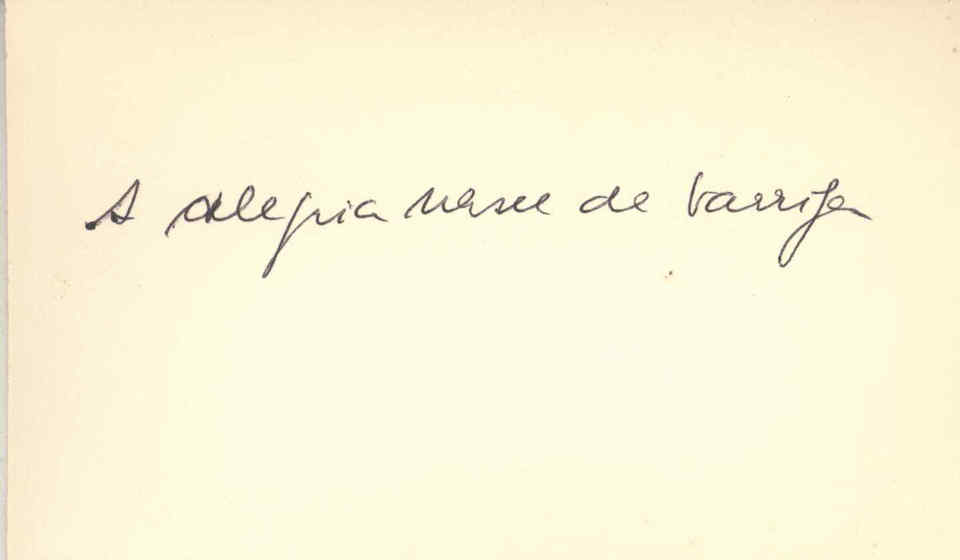 A alegria nasce de barriga